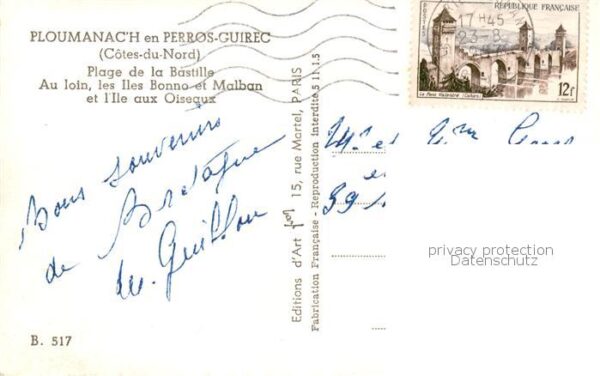 PLOUMANAC'H en PERROS-GUIREC
(Côtes-du-Nord)
Plage de la Bastille
Au loin, les Iles Bonno et Malban
et l'Ile aux Oiseaux
Bons souvenirs
de Bretagne
M. Guillou
B. 517
Editions d'Art 15, rue Martel, PARIS
Fabrication Française - Reproduction interdite 5 11.5
17H45
23-8
POSTES
RÉPUBLIQUE FRANÇAISE
Le Pont Valentré (Cahors)
12F
Mr et Mme
et
39
privacy protection
Datenschutz